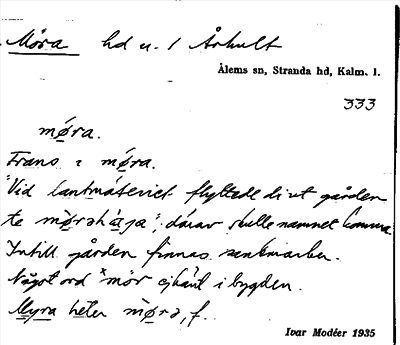 Möra hd u. 1 Århult
Ålems sn, Stranda hd, Kalm. l.
333
møra.
Frans i møra.
"Vid lantmäteriet flyttede di ut gården
te mørahaja"; därav skulle namnet komma
Intill gården finnas sankmarker.
Något ord *mör ej känt i bygden.
Myra heter møra, f.
Ivar Modéer 1935